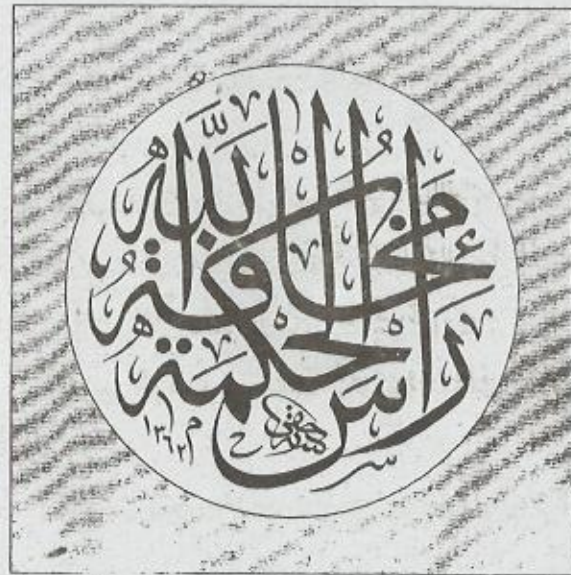 رأس الحكمة مخافة الله
١٣٦٢